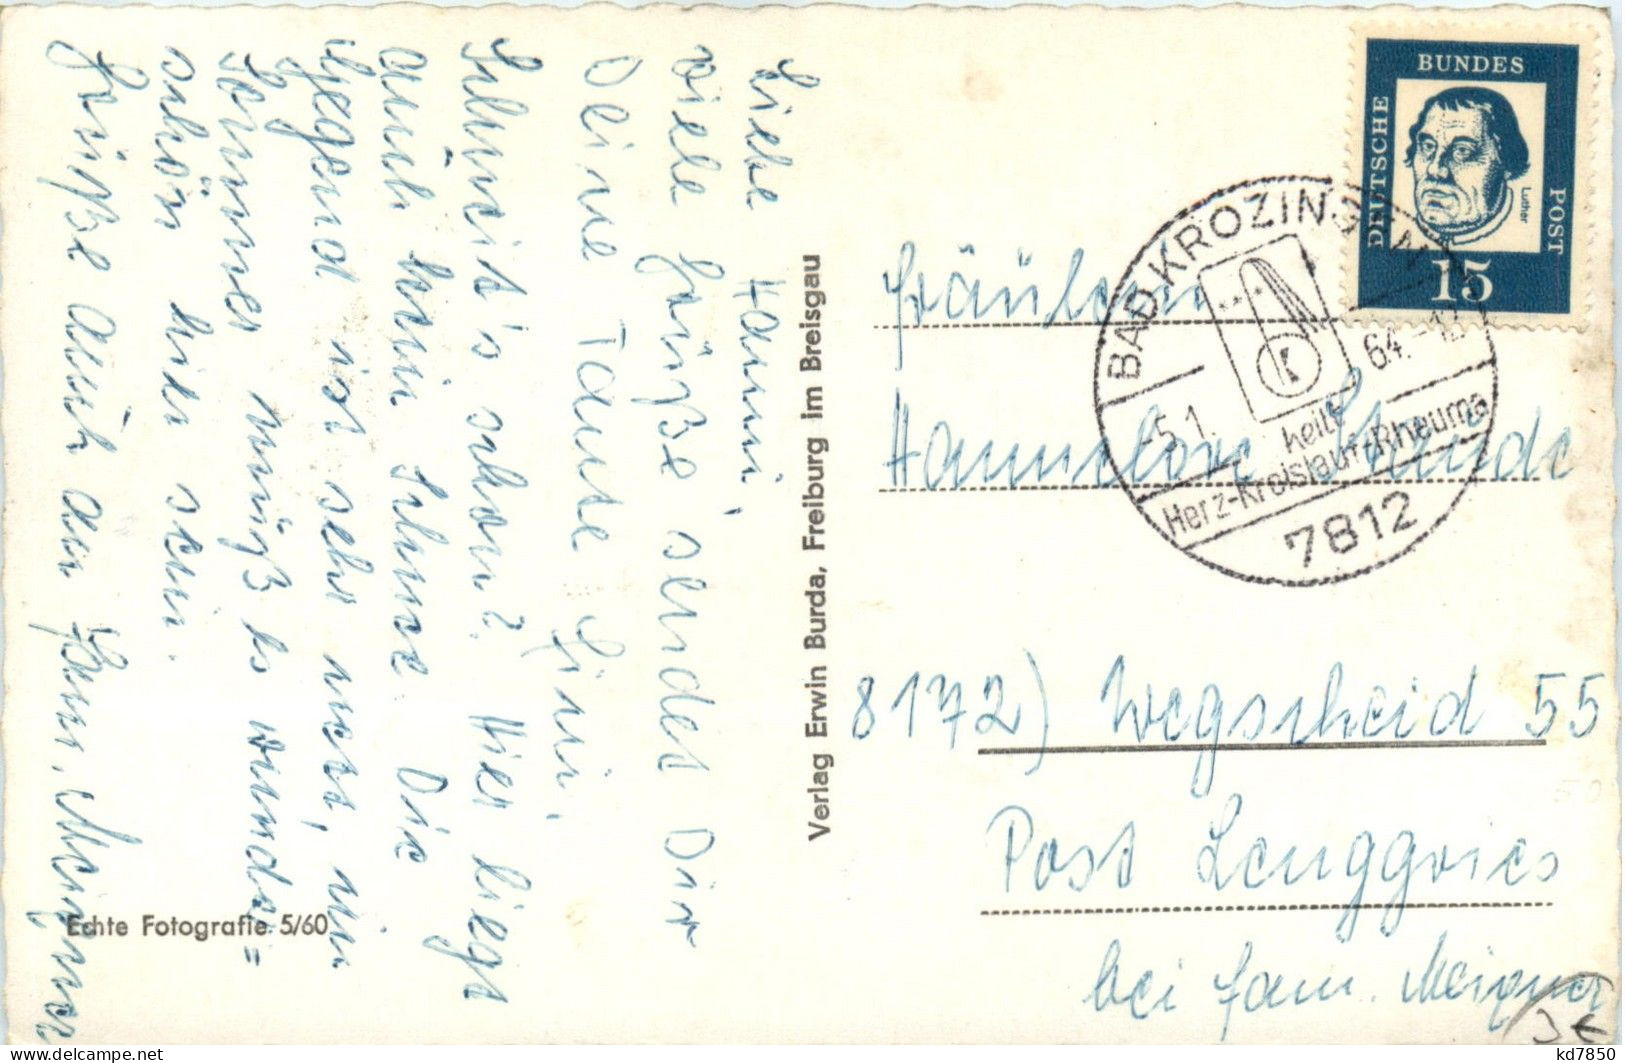 Liebe Hanni,
viele Grüße sendet Dir
Deine Tante Gini.
Schneit's schon? Hier liegt
auch kein Schnee. Die
Gegend ist sehr nett, im
Sommer muß es wunder=
schön hier sein.
Grüße auch an Fam. Meixner
Echte Fotografie 5/60
Verlag Erwin Burda, Freiburg im Breisgau
DEUTSCHE BUNDES POST
Luther
15
BAD KROZINGEN
-5.1. 64.-12
K
heilt
Herz-Kreislauf-Rheuma
7812
Fräulein
Hannelore
8172) Wegscheid 55
Post Lenggries
bei Fam. Meixner
3 €
kd7850